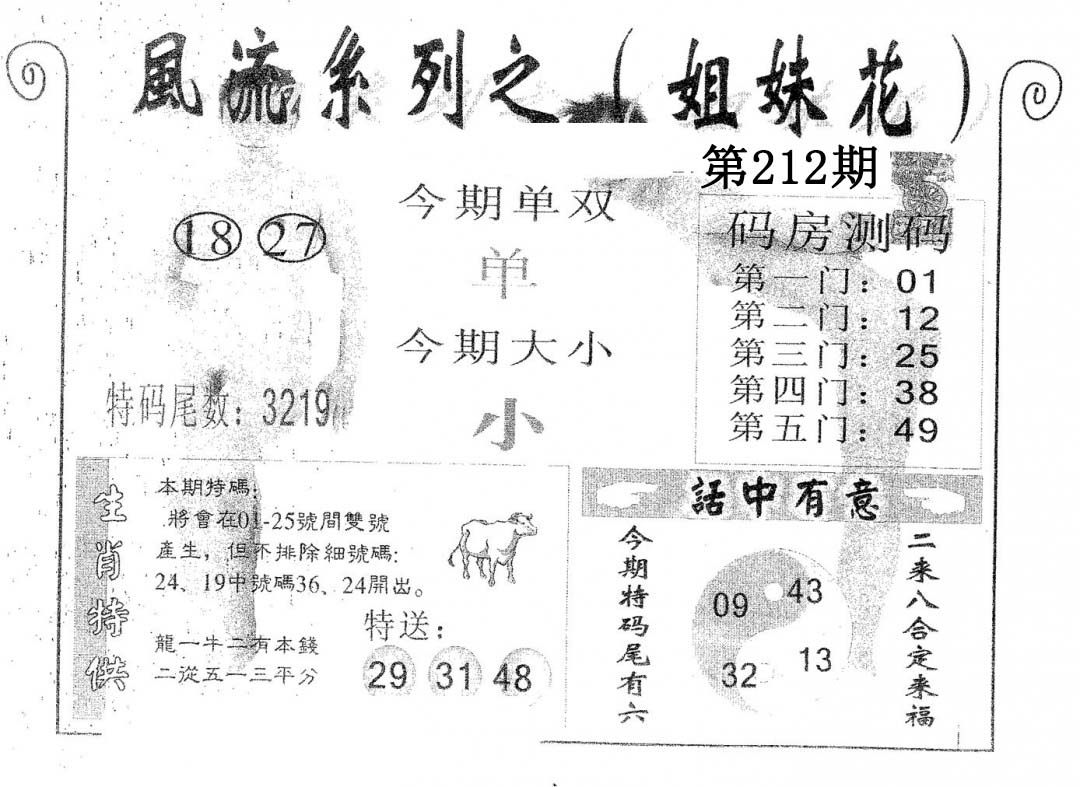 風流系列之（姐妹花）
第212期
18 27
今期单双
单
今期大小
小
特码尾数：3219
码房测码
第一门：01
第二门：12
第三门：25
第四门：38
第五门：49
生肖特供
本期特碼：
將會在01-25號間雙號
產生，但不排除細號碼:
24、19中號碼36、24開出。
龍一牛二有本錢
二從五一三平分
特送：
29 31 48
話中有意
今期特码尾有六
09 43
32 13
二来八合定来福